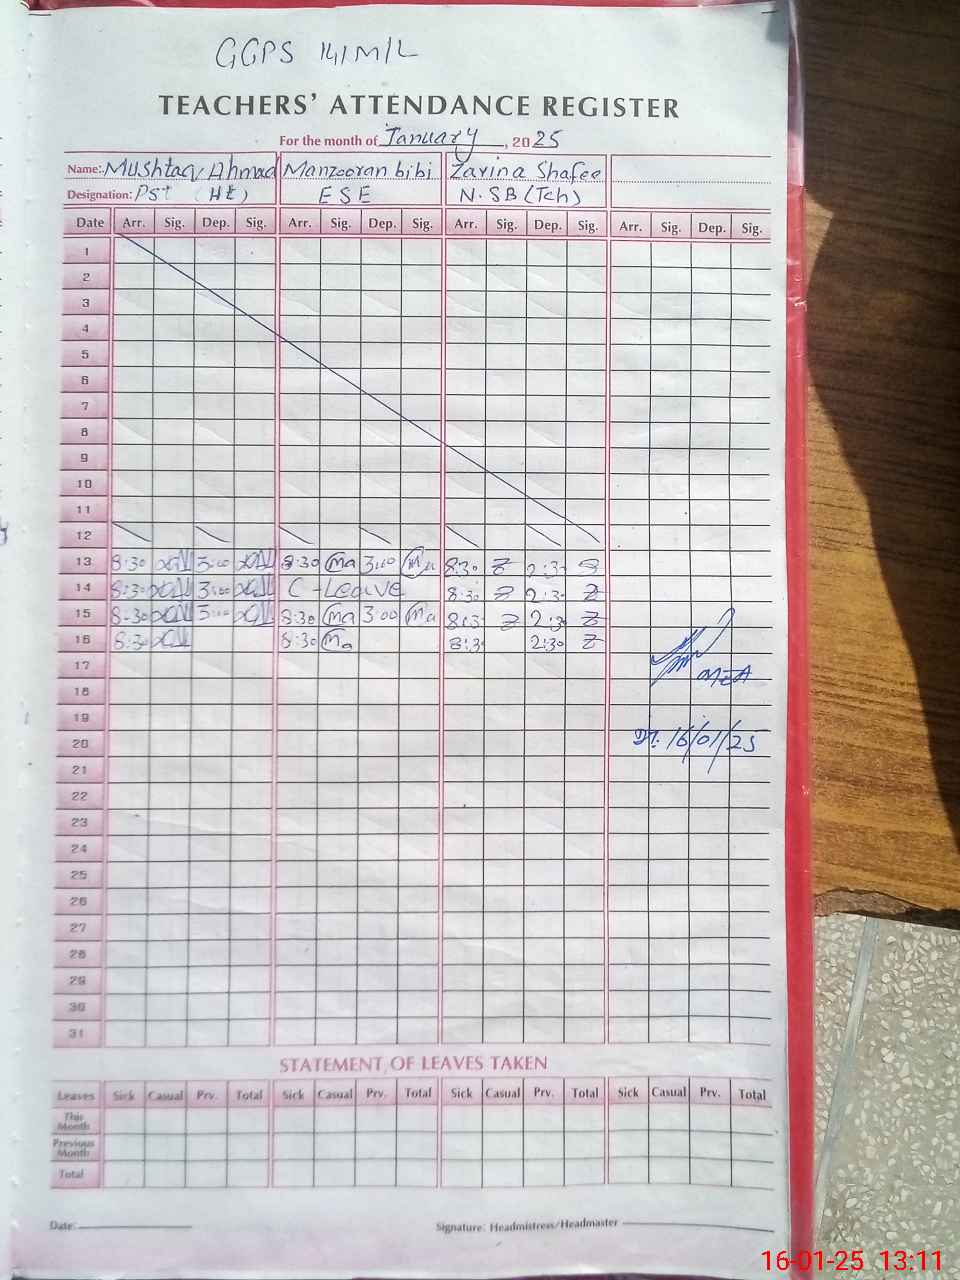 GGPS 141 M/L
TEACHERS' ATTENDANCE REGISTER
For the month of January, 2025
Name: Mushtaq Ahmad Manzooran bibi Zarina Shafee
Designation: PST (Ht) ESE N.SB (Tch)
Date Arr. Sig. Dep. Sig. Arr. Sig. Dep. Sig. Arr. Sig. Dep. Sig. Arr. Sig. Dep. Sig.
1
2
3
4
5
6
7
8
9
10
11
12
13 8:30 3:00 8:30 Ma 3:00 Ma 8:30 2:30
14 8:30 3:00 C-Leave 8:30 2:30
15 8:30 3:00 8:30 Ma 3:00 Ma 8:30 2:30
16 8:30 8:30 Ma 8:30 2:30
17 MEA
18
19
20 Dt: 16/01/25
21
22
23
24
25
26
27
28
29
30
31
STATEMENT OF LEAVES TAKEN
Leaves Sick Casual Prv. Total Sick Casual Prv. Total Sick Casual Prv. Total Sick Casual Prv. Total
This Month
Previous Month
Total
Date: Signature: Headmistress/Headmaster
16-01-25 13:11